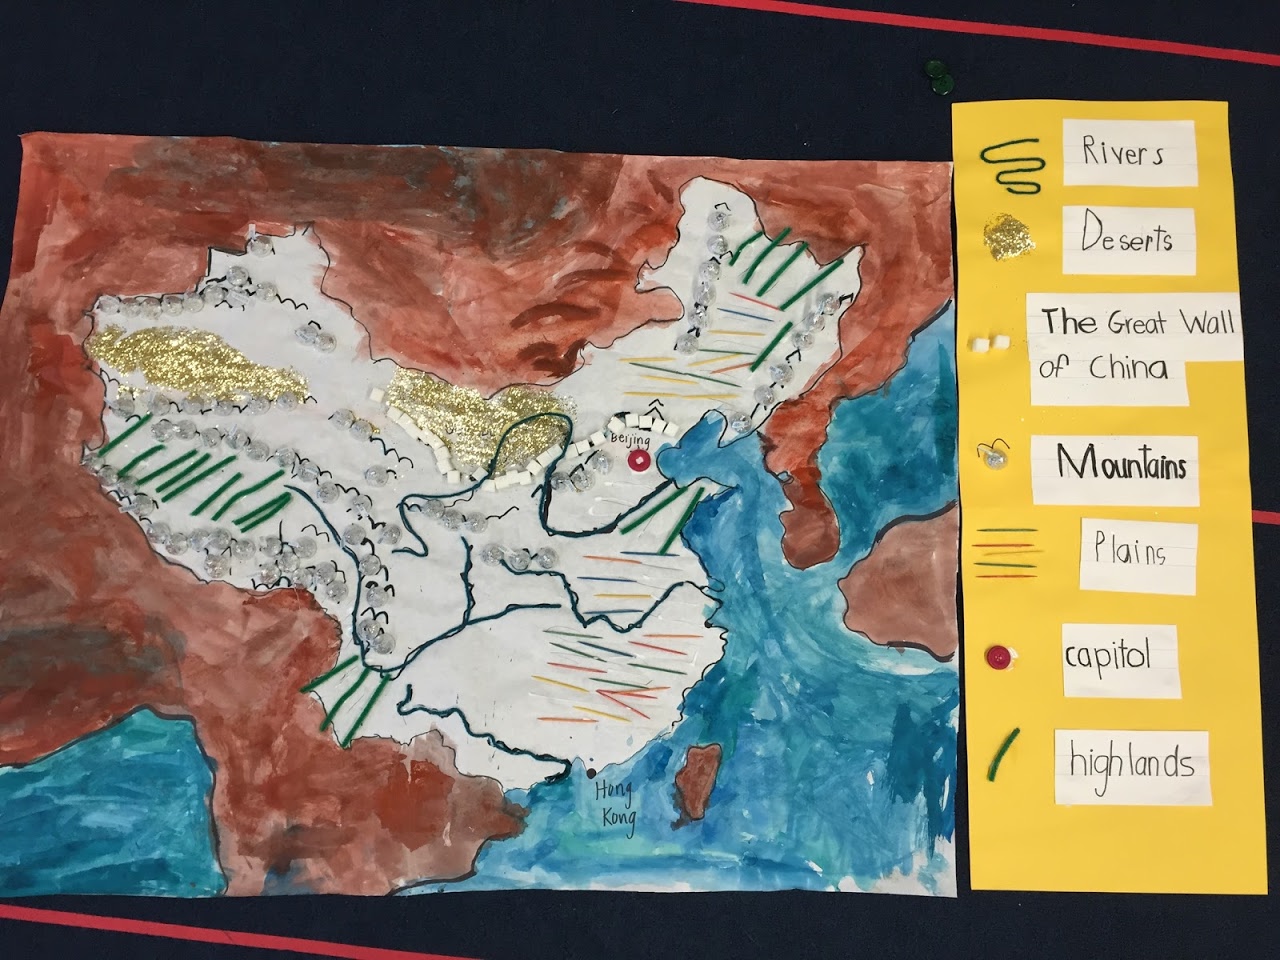 Beijing
Hong
Kong
Rivers
Deserts
The Great Wall
of China
Mountains
Plains
capitol
highlands